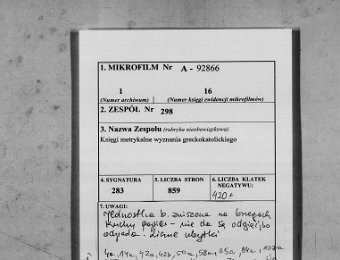 1. MIKROFILM Nr A - 92866
1 16
(Numer archiwum) (Numer księgi ewidencji mikrofilmów)
2. ZESPÓŁ Nr 298
3. Nazwa Zespołu (rubryka nieobowiązkowa)
Księgi metrykalne wyznania greckokatolickiego
4. SYGNATURA 5. LICZBA STRON 6. LICZBA KLATEK
NEGATYWU:
283 859 420+
7. UWAGI:
Jednostka b. zniszona na brzegach
Kruchy papier - nie da się odgiąć, bo
odpada. Liczne ubytki
4a, 11a, 42a, 42b, 50a, 58a, 65a, 84a, 107a